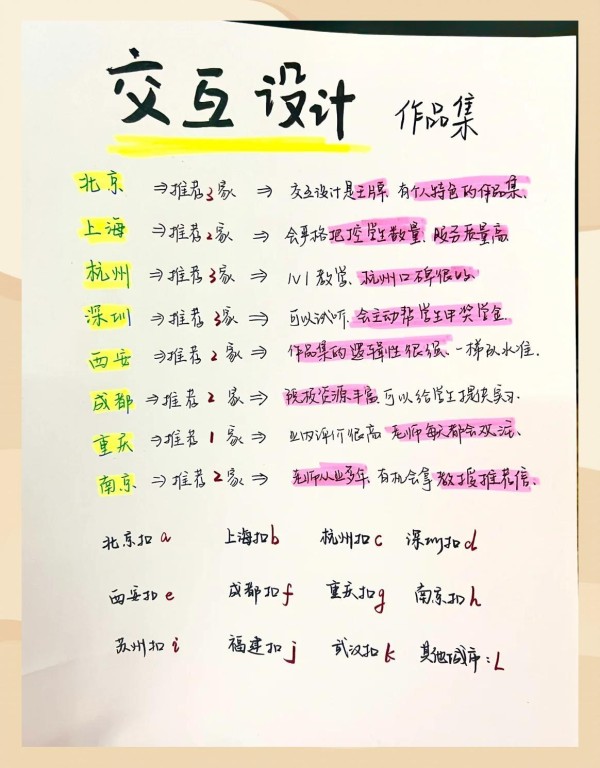 交互设计 作品集
北京 ⇒推荐3家 ⇒ 交互设计是王牌, 有个人特色的作品集.
上海 ⇒推荐2家 ⇒ 会严格把控学生数量, 服务质量高
杭州 ⇒推荐3家 ⇒ 1V1教学, 杭州口碑很好
深圳 ⇒推荐3家 ⇒ 可以试听, 会主动帮学生申奖学金
西安 ⇒推荐2家 ⇒ 作品集的逻辑性很强, 一梯队水准.
成都 ⇒推荐2家 ⇒ 院校资源丰富, 可以给学生提供实习.
重庆 ⇒推荐1家 ⇒ 业内评价很高 老师每天都会
南京 ⇒推荐2家 ⇒ 老师从业多年, 有机会拿教授推荐信.
北京扣a 上海扣b 杭州扣c 深圳扣d
西安扣e 成都扣f 重庆扣g 南京扣h
苏州扣i 福建扣j 武汉扣k 其他城市:L